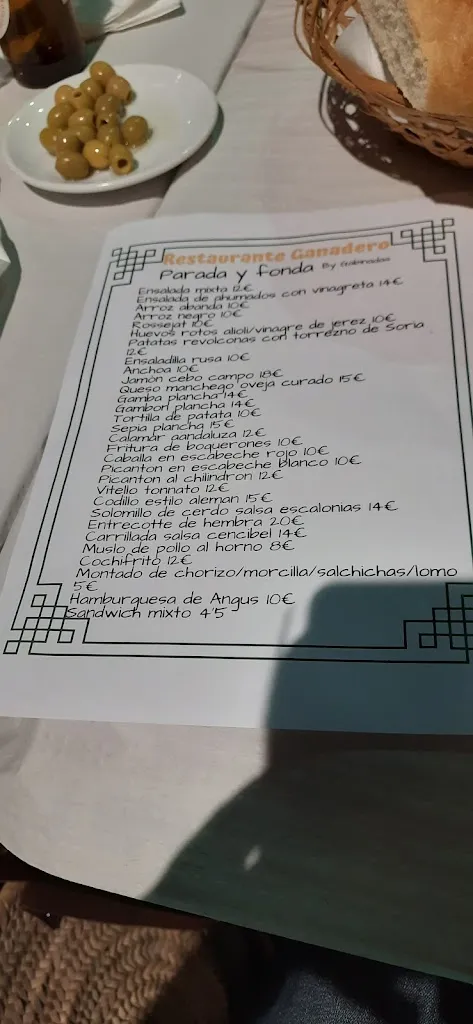 Restaurante Ganadero
Parada y fonda By Gabinadas
Ensalada mixta 12€
Ensalada de phumados con vinagreta 14€
Arroz abanda 10€
Arroz negro 10€
Rossejat 10€
Huevos rotos alioli/vinagre de jerez 10€
Patatas revolconas con torrezno de Soria
12€
Ensaladilla rusa 10€
Anchoa 10€
Jamón cebo campo 18€
Queso manchego oveja curado 15€
Gamba plancha 14€
Gambon plancha 14€
Tortilla de patata 10€
Sepia plancha 15€
Calamar aandaluza 12€
Fritura de boquerones 10€
Caballa en escabeche rojo 10€
Picanton en escabeche blanco 10€
Picanton al chilindron 12€
Vitello tonnato 12€
Codillo estilo aleman 15€
Solomillo de cerdo salsa escalonias 14€
Entrecotte de hembra 20€
Carrillada salsa cencibel 14€
Muslo de pollo al horno 8€
Cochifrito 12€
Montado de chorizo/morcilla/salchichas/lomo
5€
Hamburguesa de Angus 10€
Sandwich mixto 4'5